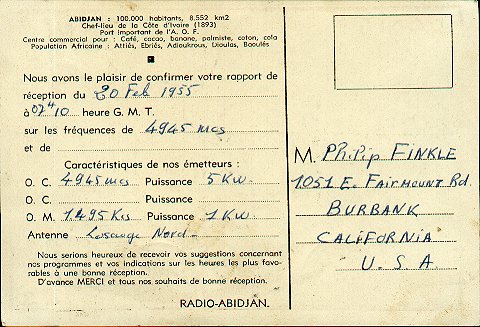 ABIDJAN : 100.000 habitants, 8.552 km2
Chef-lieu de la Côte d'Ivoire (1893)
Port important de l'A. O. F.
Centre commercial pour : Café, cacao, banane, palmiste, coton, cola
Population Africaine : Attiés, Ebriés, Adioukrous, Dioulas, Baoulés
Nous avons le plaisir de confirmer votre rapport de
réception du 20 Feb 1955
à 0710 heure G. M. T.
sur les fréquences de 4945 mcs
et de
Caractéristiques de nos émetteurs :
O. C. 4945 mcs Puissance 5 KW.
O. C. Puissance
O. M. 1.495 Kcs Puissance 1 KW
Antenne Losange Nord
Nous serions heureux de recevoir vos suggestions concernant
nos programmes et vos indications sur les heures les plus favo-
rables à une bonne réception.
D'avance MERCI et tous nos souhaits de bonne réception.
RADIO-ABIDJAN.
M. PHILIP FINKLE
1051 E. FAIRMOUNT Rd.
BURBANK
CALIFORNIA
U. S. A.